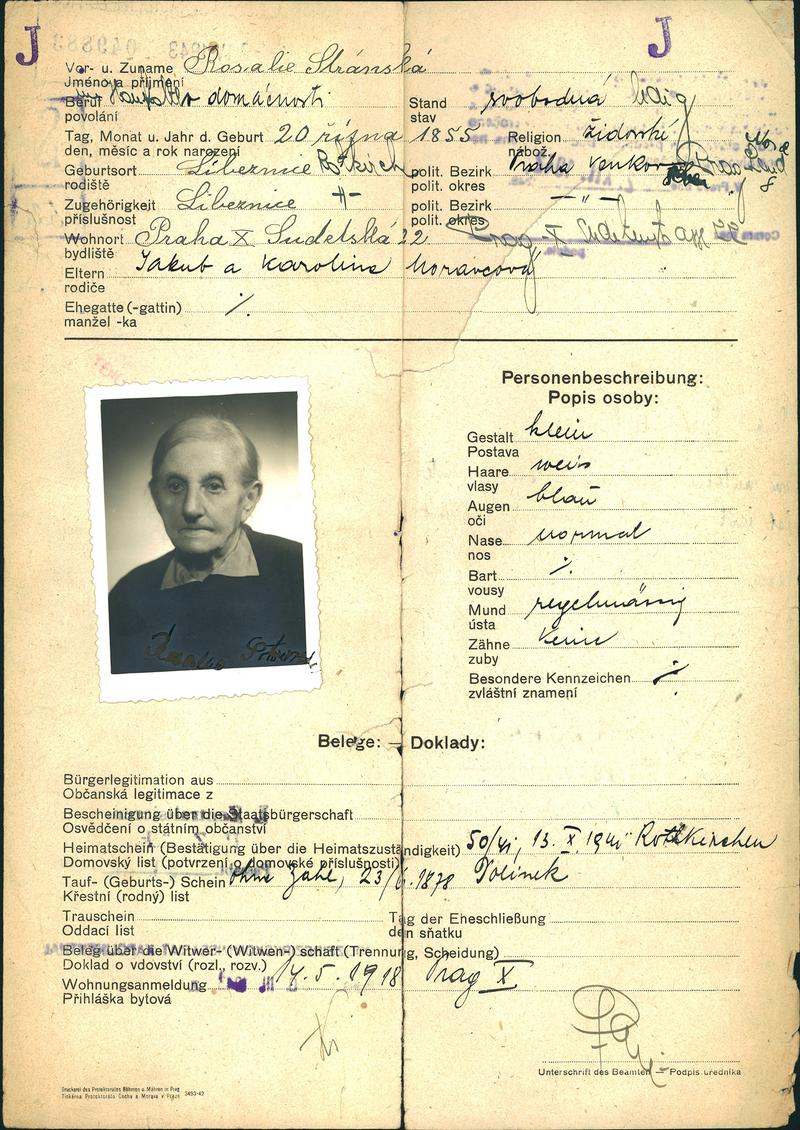 J J
Vor- u. Zuname Rosalie Stránská
Jméno a příjmení
Beruf v domácnosti Stand svobodná ledig
povolání stav
Tag, Monat u. Jahr d. Geburt 20 října 1855 Religion židovské
den, měsíc a rok narození nábož.
Geburtsort Libeznice polit. Bezirk Praha venkov
rodiště polit. okres
Zugehörigkeit Libeznice -"- polit. Bezirk -"-
příslušnost polit. okres
Wohnort Praha X Sudetská 22 Prag X
bydliště
Eltern Jakub a Karolina Moravcová
rodiče
Ehegatte (-gattin) ./.
manžel -ka
Personenbeschreibung:
Popis osoby:
Gestalt klein
Postava
Haare weis
vlasy
Augen blau
oči
Nase normal
nos
Bart ./.
vousy
Mund regelmässig
ústa
Zähne keine
zuby
Besondere Kennzeichen ./.
zvláštní znamení
Belege: — Doklady:
Bürgerlegitimation aus
Občanská legitimace z
Bescheinigung über die Staatsbürgerschaft
Osvědčení o státním občanství
Heimatschein (Bestätigung über die Heimatszuständigkeit) 50/41, 13. X. 1941 Rothkirchen
Domovský list (potvrzení o domovské příslušnosti)
Tauf- (Geburts-) Schein ohne Zahl, 23/6. 1878
Křestní (rodný) list
Trauschein Tag der Eheschließung
Oddací list den sňatku
Beleg über die Witwer- (Witwen-) schaft (Trennung, Scheidung)
Doklad o vdovství (rozl., rozv.)
Wohnungsanmeldung 14. 5. 1918 Prag X
Přihláška bytová
Unterschrift des Beamten — Podpis úředníka
Druckerei des Protektorates Böhmen u. Mähren in Prag
Tiskárna Protektorátu Čechy a Morava v Praze 3493-42